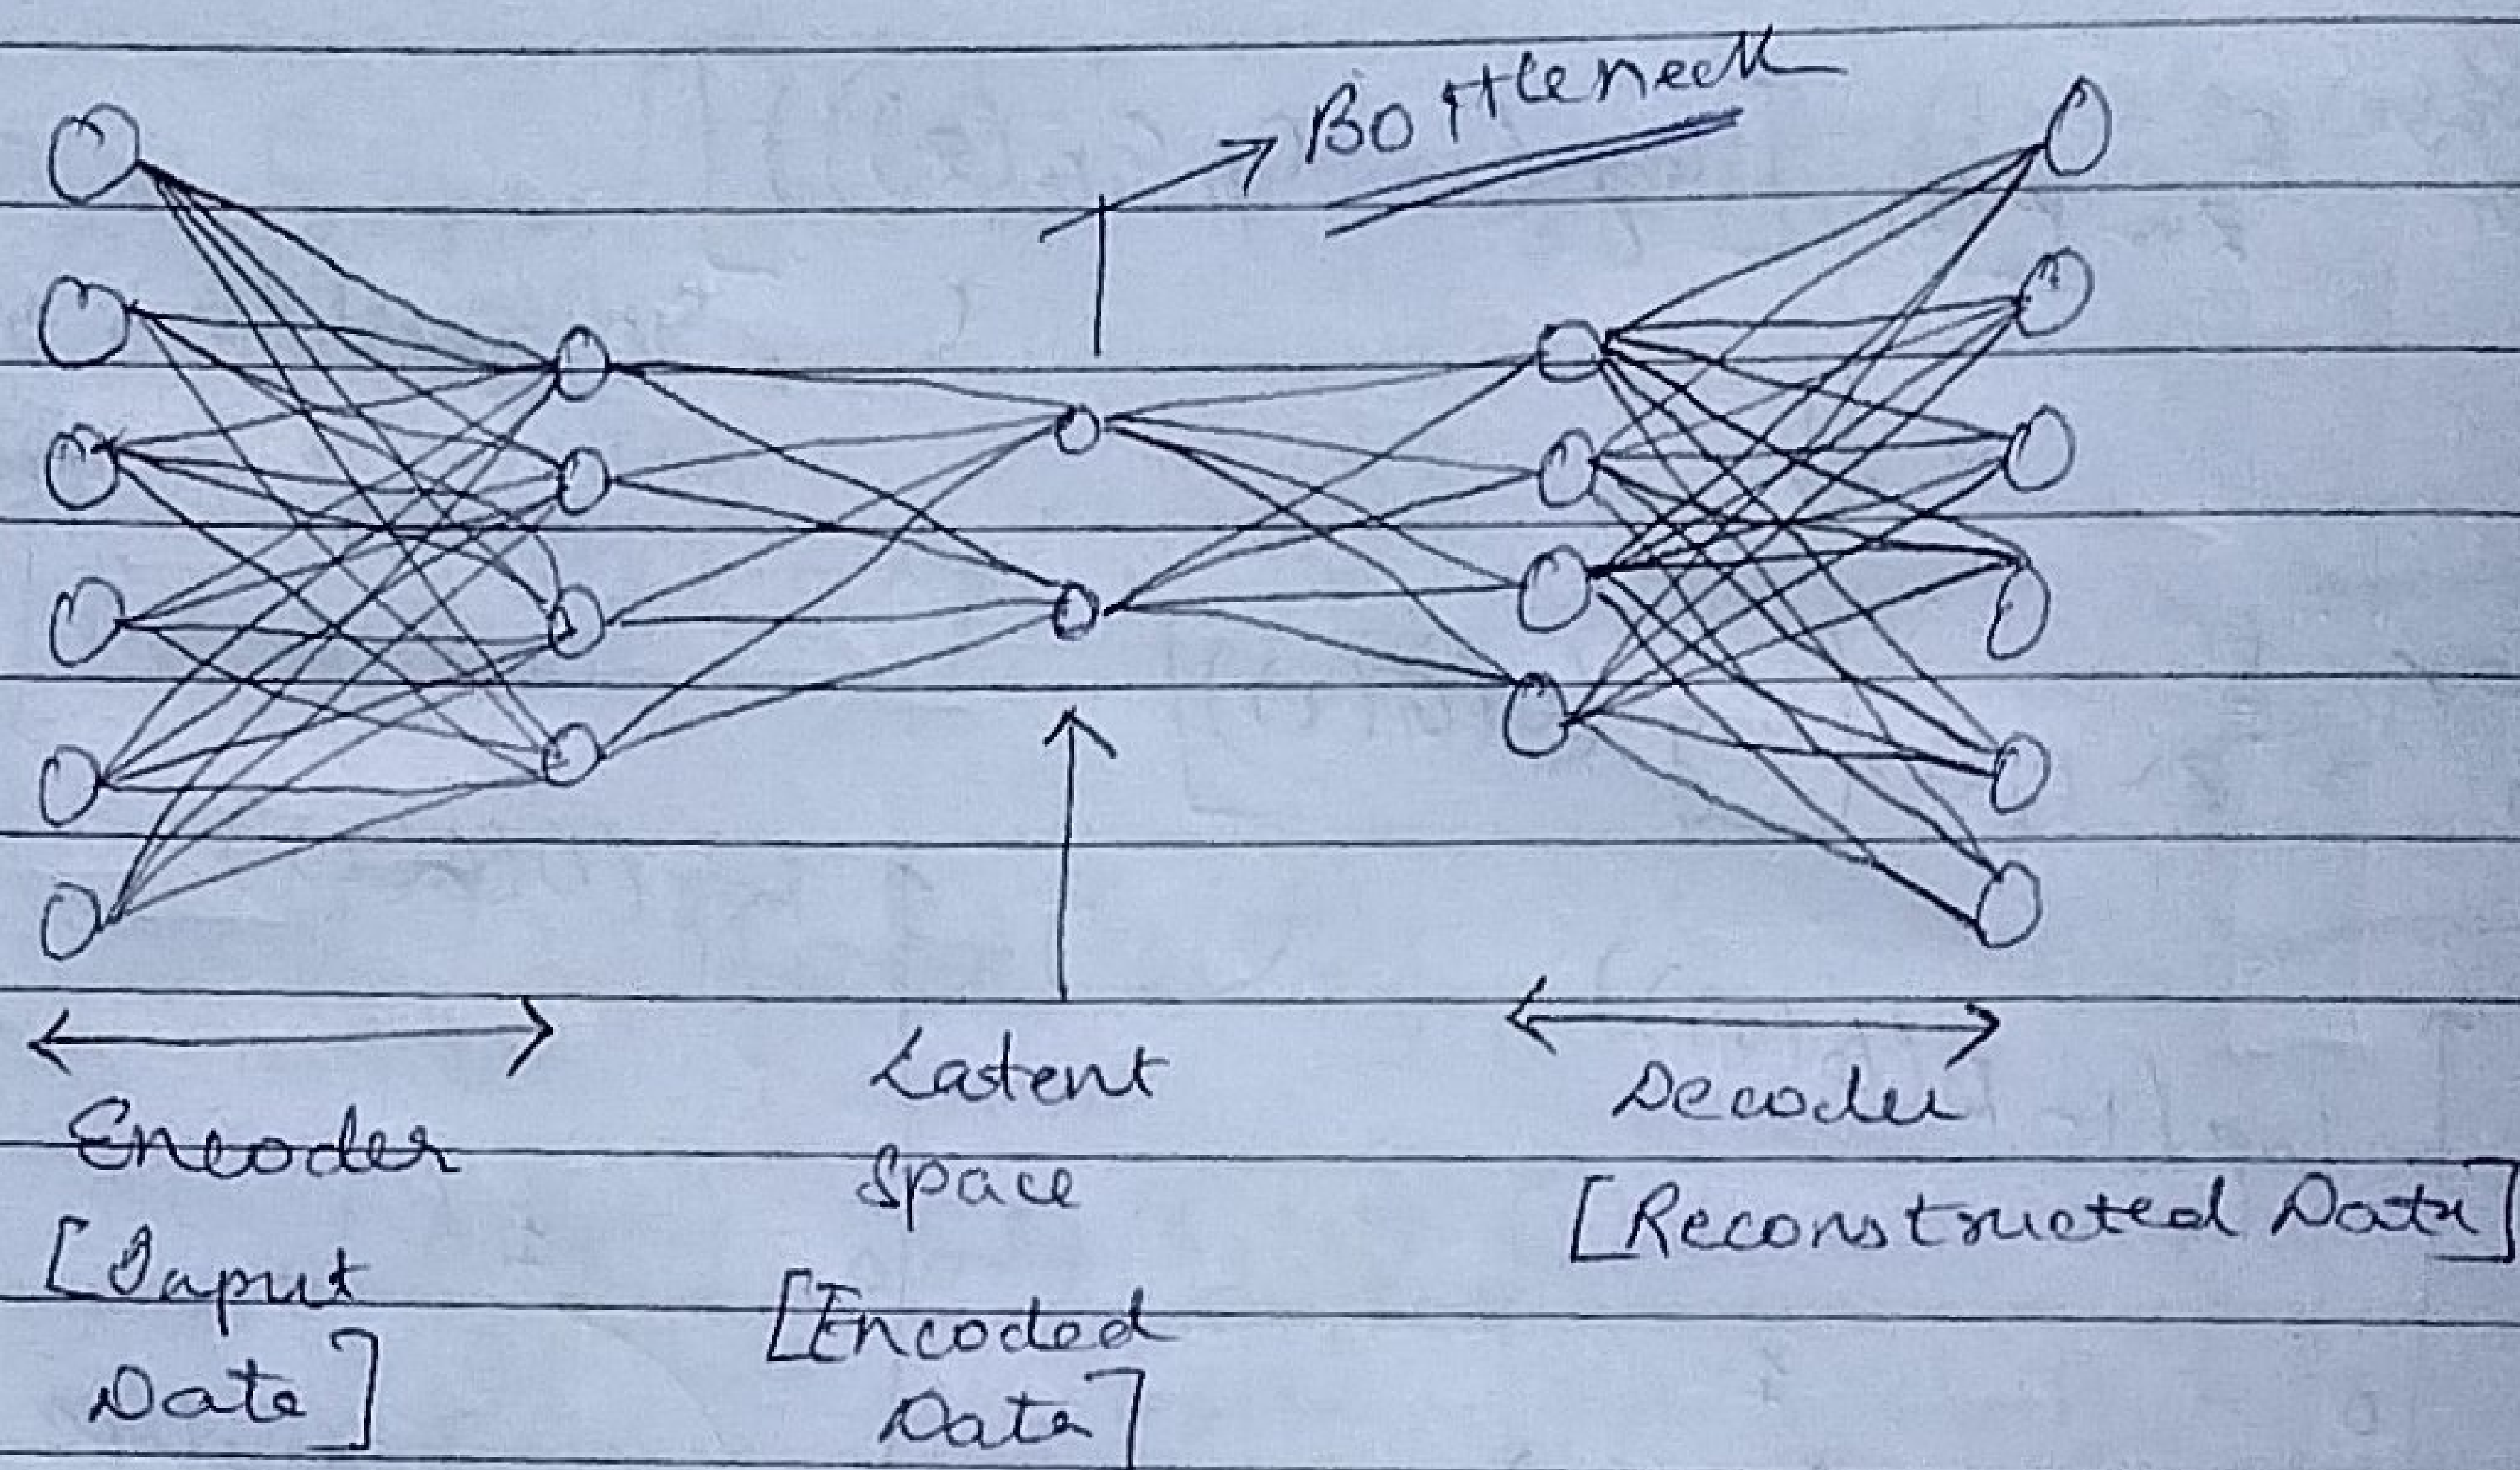 Bottleneck
Encoder
[Input
Data]
Latent
Space
[Encoded
Data]
Decoder
[Reconstructed Data]